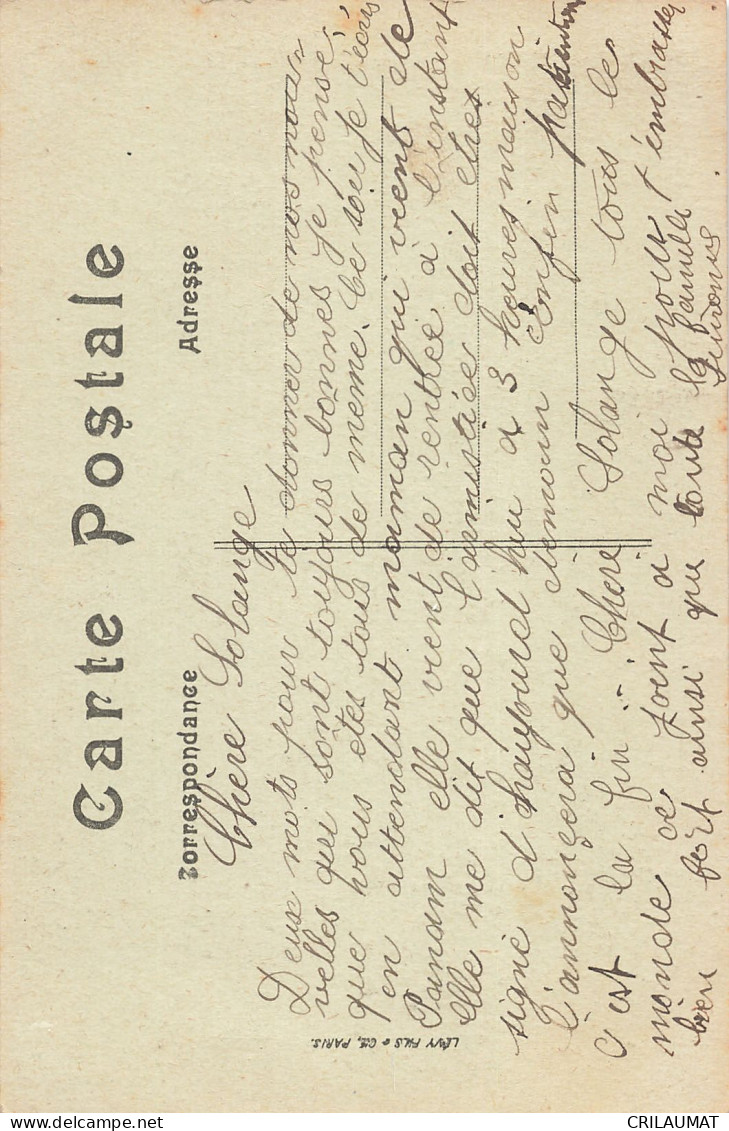 Carte Postale
Correspondance
Adresse
Chère Solange
Deux mots pour te donner de nos nou-
velles qui sont toujours bonnes je pense
que vous etes tous de meme. Ce soir je t'écris
en attendant maman qui vient de
Panam elle vient de rentrée à l'instant
Elle me dit que l'armistice doit etres
signé d'haujourd'hui a 3 heures mais on
l'annonçera que demain enfin
c'est la fin. Chere Solange tous le
monde ce joint a moi pour t'embrasser
bien fort ainsi que toute la famille
LÉVY FILS & CIE, PARIS.
CRILAUMAT